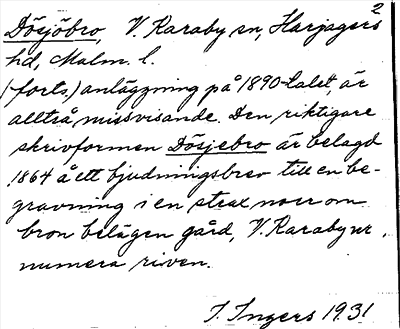 2
Dösjöbro, V. Karaby sn, Harjagers
hd, Malm. l.
(forts.) anläggning på 1890-talet, är
alltså missvisande. Den riktigare
skrivformen Dösjebro är belagd
1864 å ett bjudningsbrev till en be-
gravning i en strax norr om
bron belägen gård, V. Karaby nr,
numera riven.
I. Ingers 1931